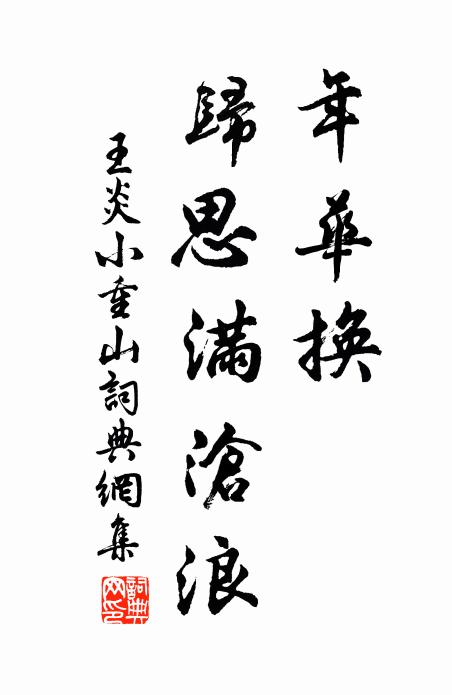 年華換
歸思滿滄浪
王炎小重山詞典網集
詞典網印